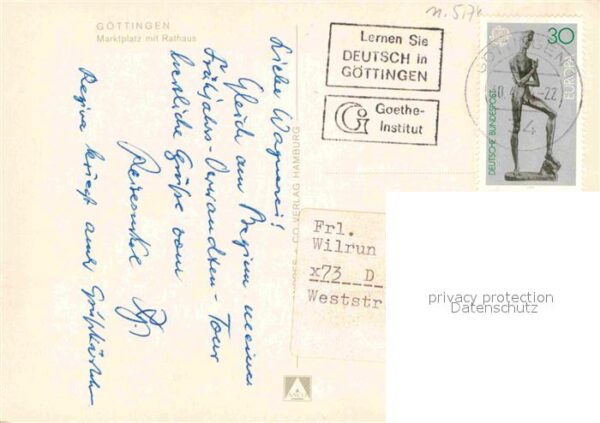 GÖTTINGEN
Marktplatz mit Rathaus
Liebe Wagnerei!
Gleich am Beginn meiner
Frühjahrs-Verwandten-Tour
herzliche Grüße vom
Reiseonkel
Regina kriegt auch
& CO VERLAG HAMBURG
Lernen Sie
DEUTSCH in
GÖTTINGEN
Goethe-
Institut
GÖTTINGEN
-22
4
30
EUROPA
DEUTSCHE BUNDESPOST
Frl.
Wilrun
x73 D
Weststr
privacy protection
Datenschutz